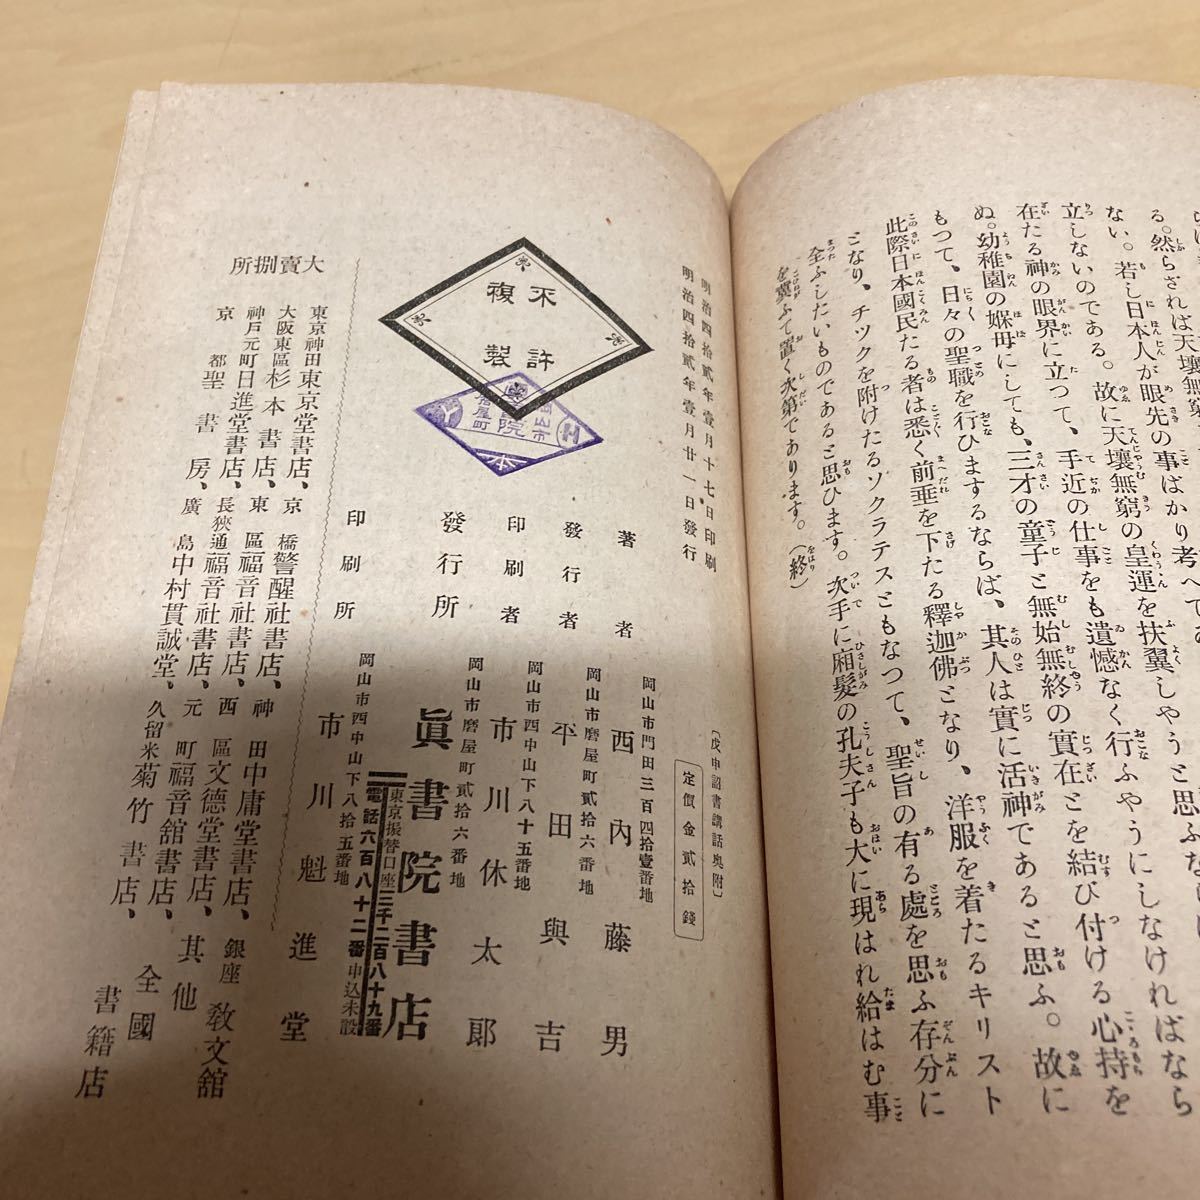 る。然らされば天壤無窮
ない。若し日本人が眼先の事ばかり考へて
立しないのである。故に天壤無窮の皇運を扶翼しやうにしなければなら
在たる神の眼界に立つて、手近の仕事をも遺憾なく行ふやうにしなければなら
ぬ。幼稚園の媬母にしても、三才の童子と無始無終の實在とを結び付ける心持を
もつて、日々の聖職を行ひまするならば、其人は實に活神であると思ふ。故に
此際日本國民たる者は悉く前垂を下たる釋迦佛となり、洋服を着たるキリスト
となり、チツクを附けたるソクラテスともなつて、聖旨の有る處を思ふ存分に
全ふしたいものであると思ひます。次手に廂髮の孔夫子も大に現はれ給はむ事
を冀ふて置く次第であります。(終)
明治四拾貳年壹月十七日印刷
明治四拾貳年壹月廿一日發行
(戊申詔書講話奧附)
定價金貳拾錢
不許複製
著者 岡山市門田三百四拾壹番地 西內藤男
發行者 岡山市磨屋町貳拾六番地 平田與吉
印刷者 岡山市西中山下八十五番地 市川休太郎
發行所 岡山市磨屋町貳拾六番地 眞書院書店
東京振替口座三千二百八十九番
電話六百八十二番申込未設
印刷所 岡山市西中山下八拾五番地 市川魁進堂
大賣捌所
東京神田東京堂書店、京橋警醒社書店、神田中庸堂書店、銀座敎文舘
大阪東區杉本書店、東區福音社書店、西區文德堂書店、其他
神戶元町日進堂書店、長狹通福音社書店、元町福音舘書店、全國
京都聖書房、廣島中村貫誠堂、久留米菊竹書店、書籍店